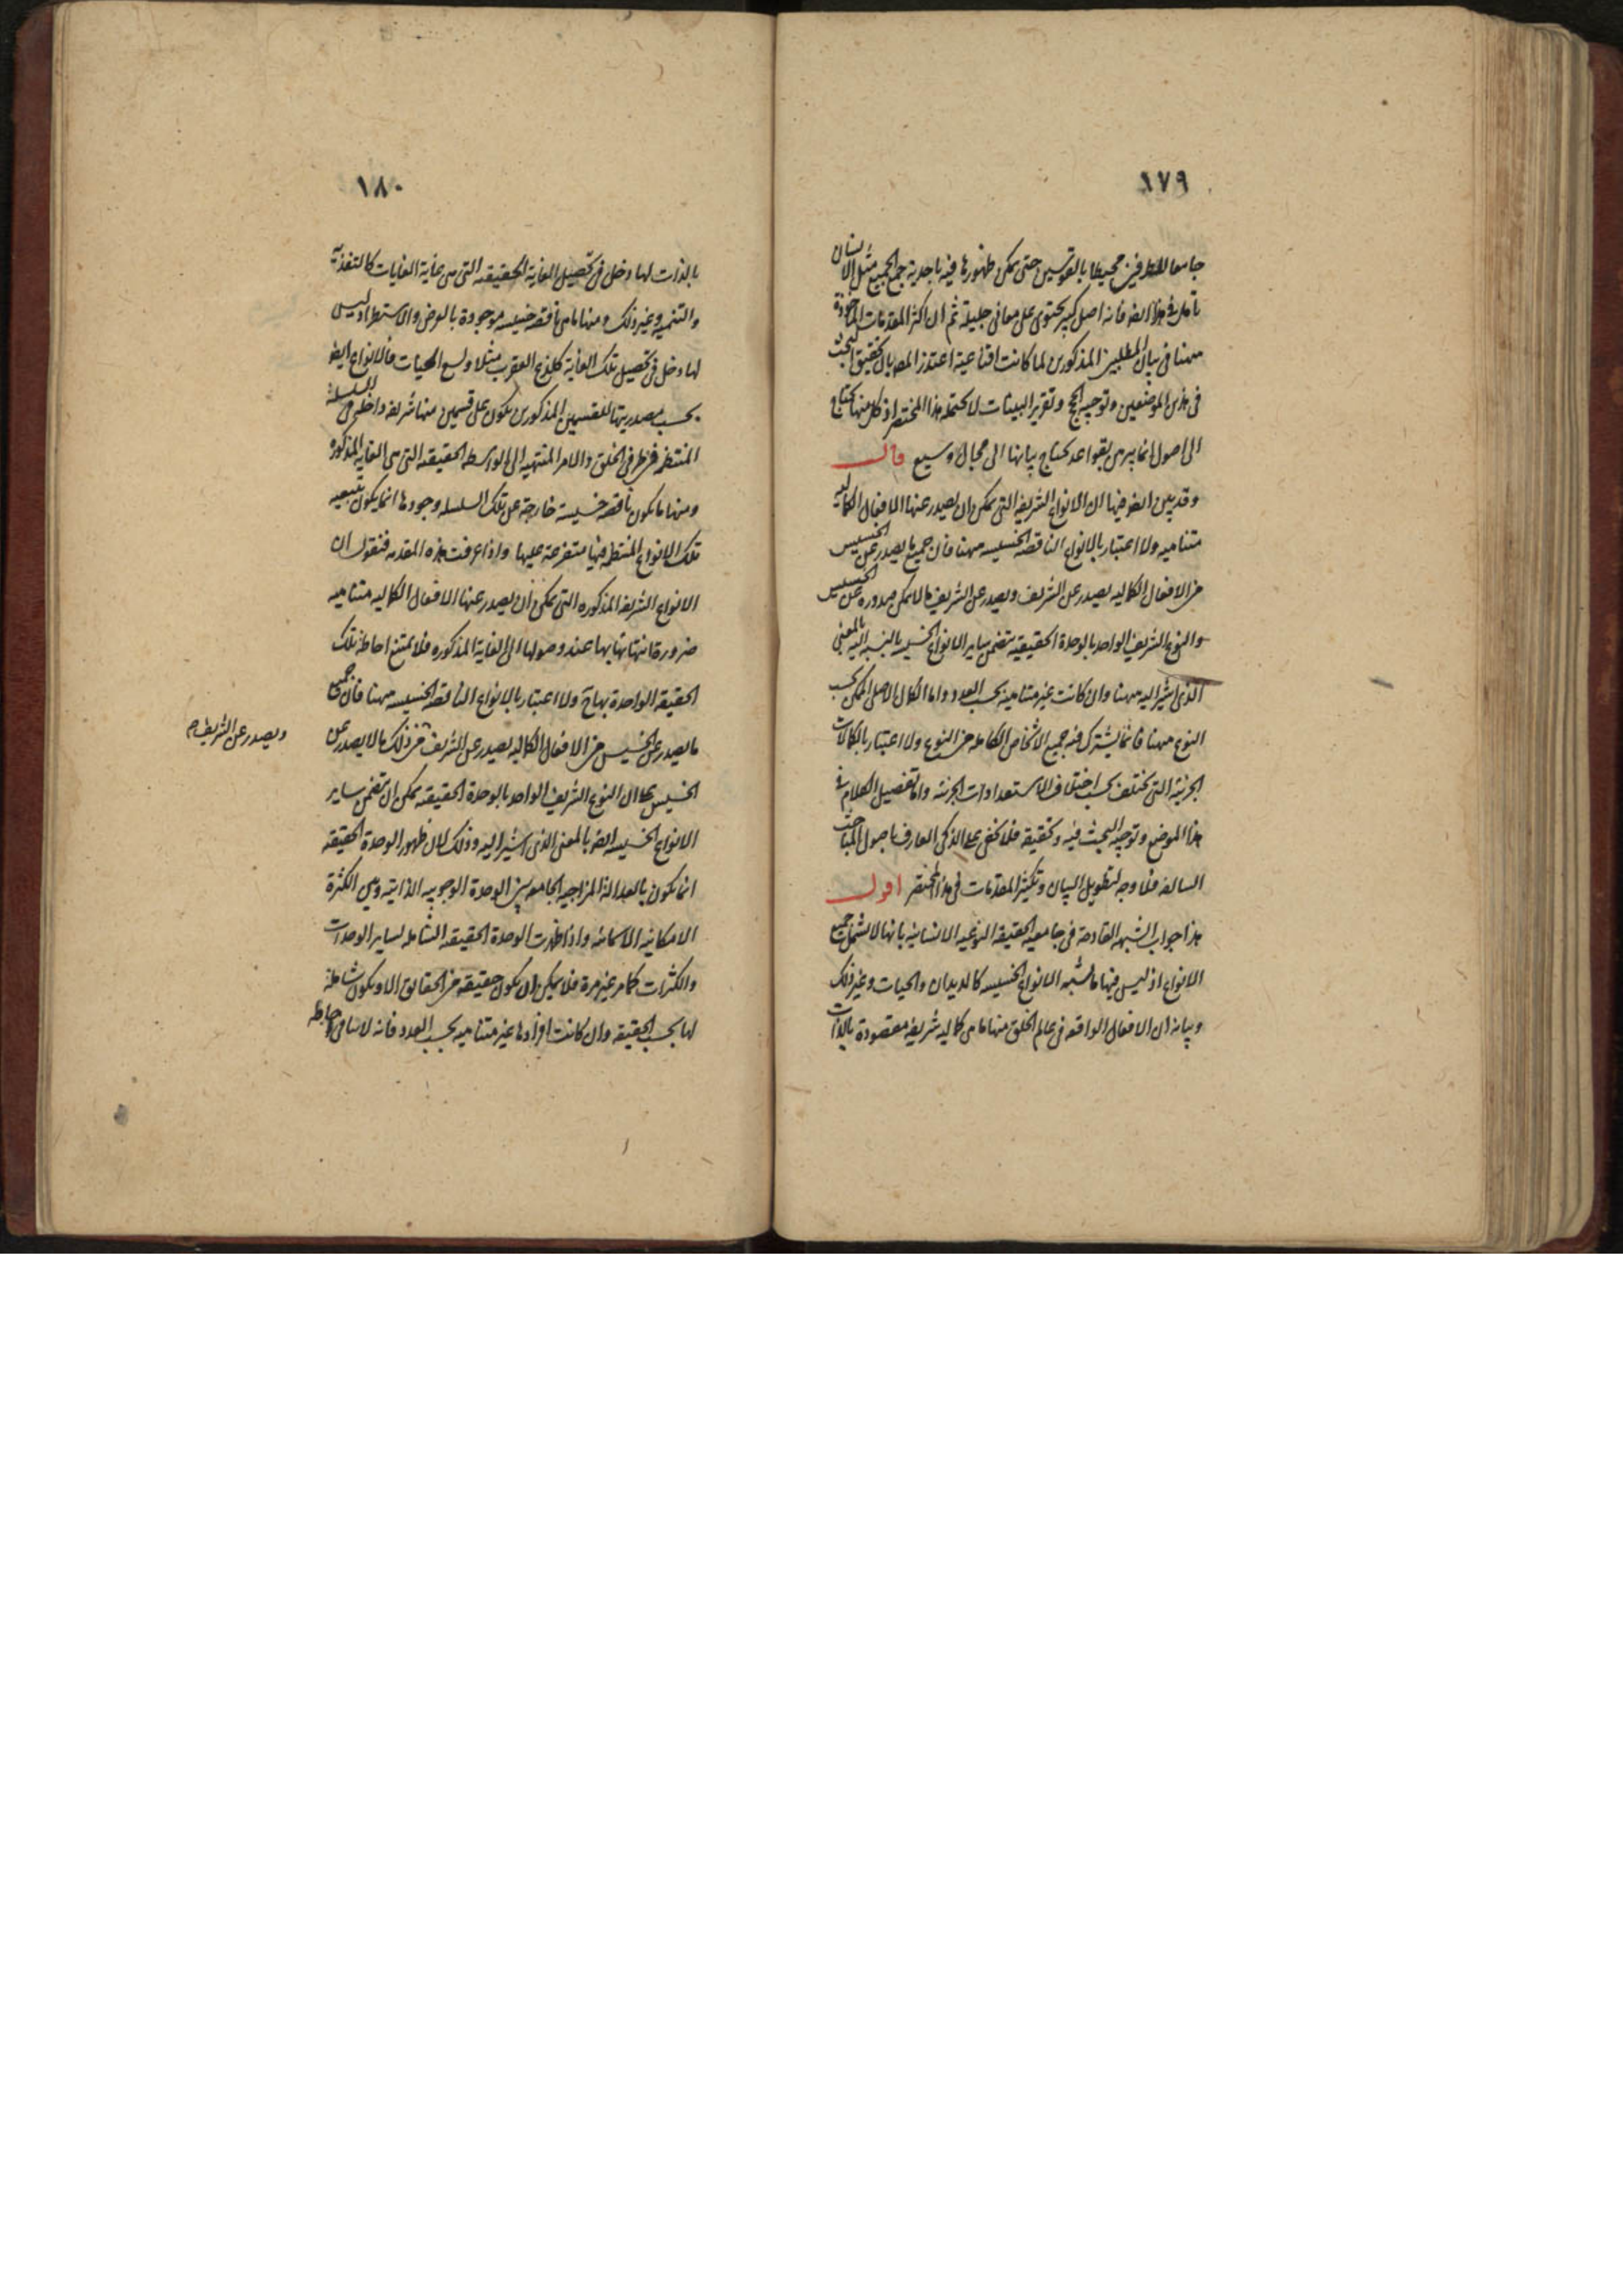 ١٧٩
جامعا للطرفين محيطا بالقوسين حتى يمكن ظهورها فيه باحدية جمع الجميع مثل الانسان
تامل في هذا ايضا فانه اصل كبير يحتوى على معانى جليلة ثم ان اكثر المقدمات الماخوذة
ههنا في بيان المطلبين المذكورين لما كانت اقناعية اعتذر المص بان تحقيق البحث
في هذين الموضعين وتوجيه الحجج وتقرير البينات لا يحتمله هذا المختصر اذ كل منها يحتاج
الى اصول انما يبرهن بقواعد يحتاج بيانها الى مجال وسيع قال
وقد يبين ايضا فيها ان الانواع الشريفة التى يمكن ان يصدر عنها الافعال الكماليه
متناهيه ولا اعتبار بالانواع الناقصه الخسيسه ههنا فان جميع ما يصدر عن الخسيس
من الافعال الكماليه يصدر عن الشريف ويصدر عن الشريف ما لا يمكن صدوره عن الخسيس
والنوع الشريف الواحد بالوحدة الحقيقيه يتضمن ساير الانواع الخسيسه بالنسبه اليه بالمعنى
الذى اشير اليه ههنا وان كانت غير متناهيه بحسب العدد واما الكمال الاصلى الممكن بحسب
النوع ههنا فانما يشترك فيه جميع الاشخاص الكامله من النوع ولا اعتبار بالكمالات
الجزئية التى تختلف بحسب اختلاف الاستعدادات الجزئية واما تفصيل الكلام في
هذا الموضع وتوجيه البحث فيه وتحقيقه فلا يخفى على الذكى العارف باصول المباحث
السالفه فلا وجه لتطويل البيان وتكثير المقدمات في هذا المختصر اقول
هذا جواب الشبهه القادحة في جامعيه الحقيقه النوعيه الانسانيه بانها لا تشمل جميع
الانواع اذ ليس فيها ما يشبه الانواع الخسيسه كالديدان والحيات وغير ذلك
وبيانه ان الافعال الواقعه في عالم الخلق منها ما هى كماليه شريفه مقصودة بالذات
١٨٠
بالذات لها دخل في تحصيل الغاية الحقيقيه التى هى غاية الغايات كالتغذية
والتنميه وغير ذلك ومنها ما هى ناقصه خسيسه موجودة بالعرض والاستطراد ليس
لها دخل في تحصيل تلك الغاية كلدغ العقرب مثلا ولسع الحيات فالانواع ايضا
بحسب مصدريتها للقسمين المذكورين تكون على قسمين منها شريفه داخلة في السلسلة
المنتظمه من طرفى الخلق والامر المنتهيه الى الواسطه الحقيقيه التى هى الغايه المذكوره
ومنها ما يكون ناقصه خسيسة خارجة عن تلك السلسله وجودها انما يكون بتبعيه
تلك الانواع المنتظمه فيها متفرعة عليها واذا عرفت هذه المقدمه فنقول ان
الانواع الشريفه المذكوره التى يمكن ان يصدر عنها الافعال الكماليه متناهيه
ضرورة انتهائها بها عند وصولها الى الغاية المذكوره فلا يمتنع احاطة تلك
الحقيقه الواحدة بها ولا اعتبار بالانواع الناقصه الخسيسه ههنا فان جميع
ما يصدر عن الخسيس من الافعال الكماليه يصدر عن الشريف من ذلك ما لا يصدر عن
ويصدر عن الشريف
الخسيس على ان النوع الشريف الواحد بالوحدة الحقيقيه يمكن ان يتضمن ساير
الانواع الخسيسه ايضا بالمعنى الذى اشير اليه وذلك لان ظهور الوحدة الحقيقه
انما يكون بالعدالة المزاجيه الجامعه بين الوحدة الوجوبيه الذاتيه وبين الكثرة
الامكانيه الاسمائيه واذا ظهرت الوحدة الحقيقه الشامله لساير الوحدات
والكثرات كما مر غير مرة فلا يمكن ان يكون حقيقة من الحقايق الا ويكون شاملة
لها بحسب الحقيقه وان كانت افرادها غير متناهيه بحسب العدد فانه لا ينافى احاطه